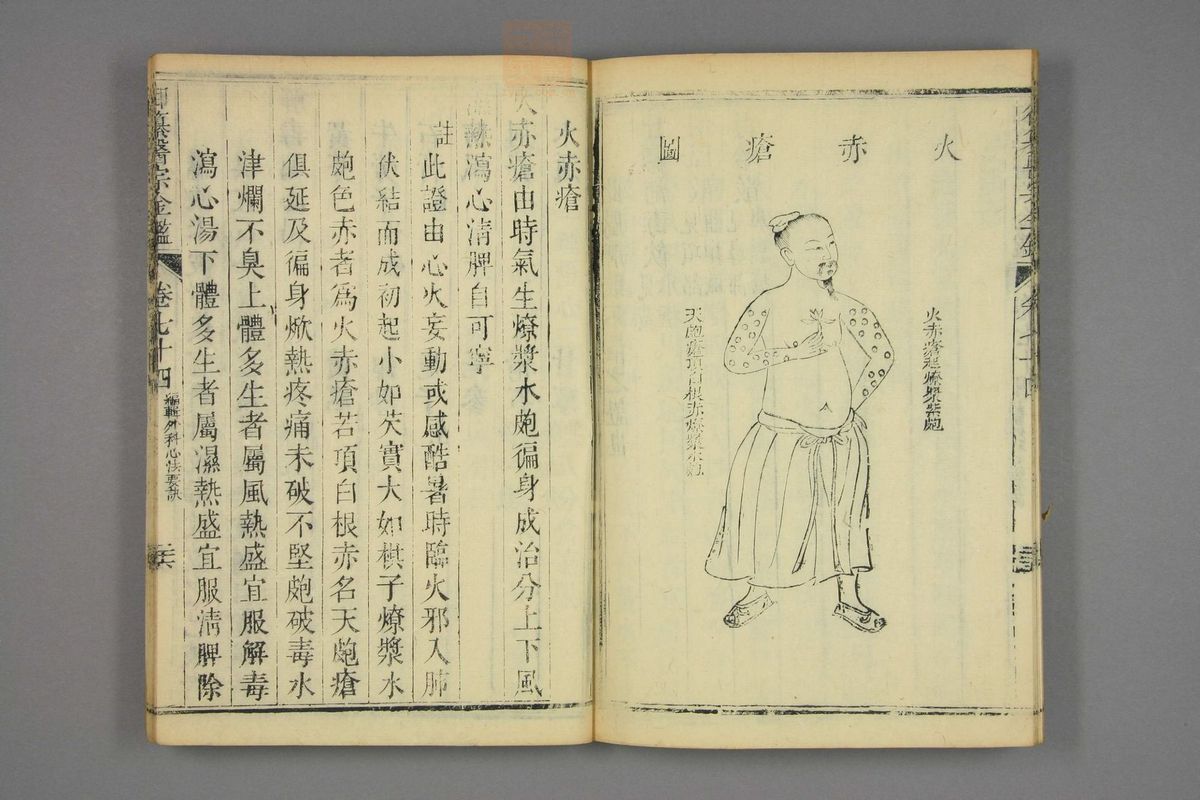 火赤瘡圖
火赤瘡起燎漿紫皰
天皰瘡頂白根赤燎漿水皰
火赤瘡
火赤瘡由時氣生燎漿水皰徧身成治分上下風
熱瀉心清脾自可寧
註此證由心火妄動或感酷暑時臨火邪入肺
伏結而成初起小如芡實大如棋子燎漿水
皰色赤者為火赤瘡若頂白根赤名天皰瘡
俱延及徧身焮熱疼痛未破不堅皰破毒水
津爛不臭上體多生者屬風熱盛宜服解毒
瀉心湯下體多生者屬濕熱盛宜服清脾除
御纂醫宗金鑑
卷七十四
編輯外科心法要訣